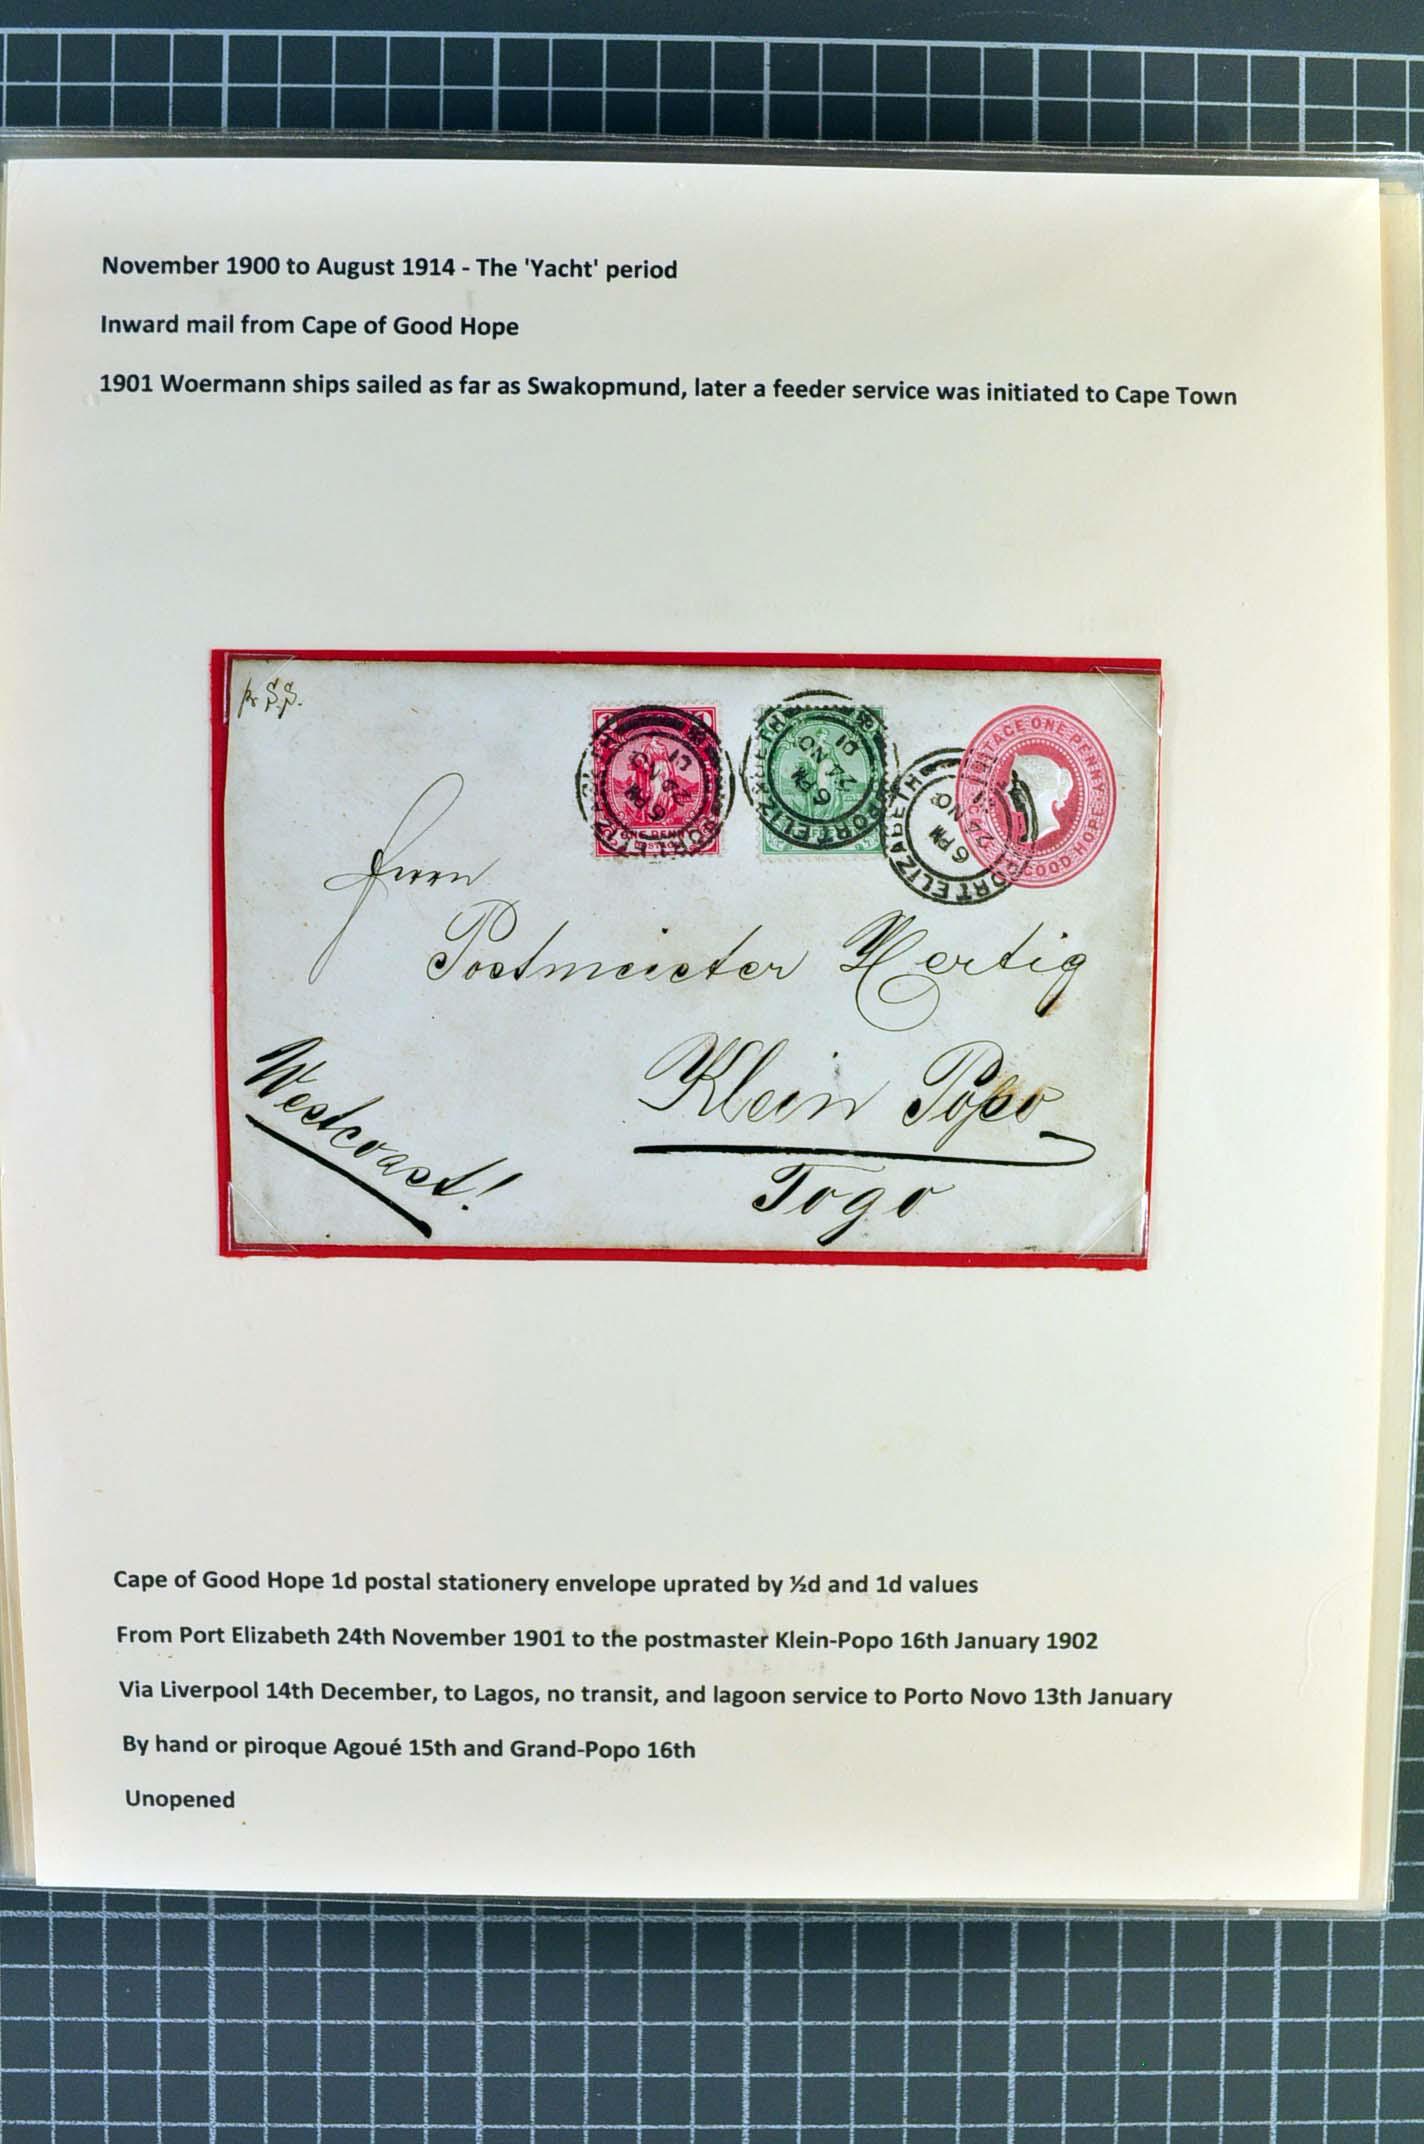 November 1900 to August 1914 - The 'Yacht' period
Inward mail from Cape of Good Hope
1901 Woermann ships sailed as far as Swakopmund, later a feeder service was initiated to Cape Town
pr S.S.
PORT ELIZABETH
6 PM
24 NO
01
ONE PENNY
POSTAGE
PORT ELIZABETH
6 PM
24 NO
01
PORT ELIZABETH
6 PM
24 NO
POSTAGE ONE PENNY
GOOD HOPE
Herrn
Postmeister Hertig
Klein Popo
Togo
Westcoast!
Cape of Good Hope 1d postal stationery envelope uprated by ½d and 1d values
From Port Elizabeth 24th November 1901 to the postmaster Klein-Popo 16th January 1902
Via Liverpool 14th December, to Lagos, no transit, and lagoon service to Porto Novo 13th January
By hand or piroque Agoué 15th and Grand-Popo 16th
Unopened